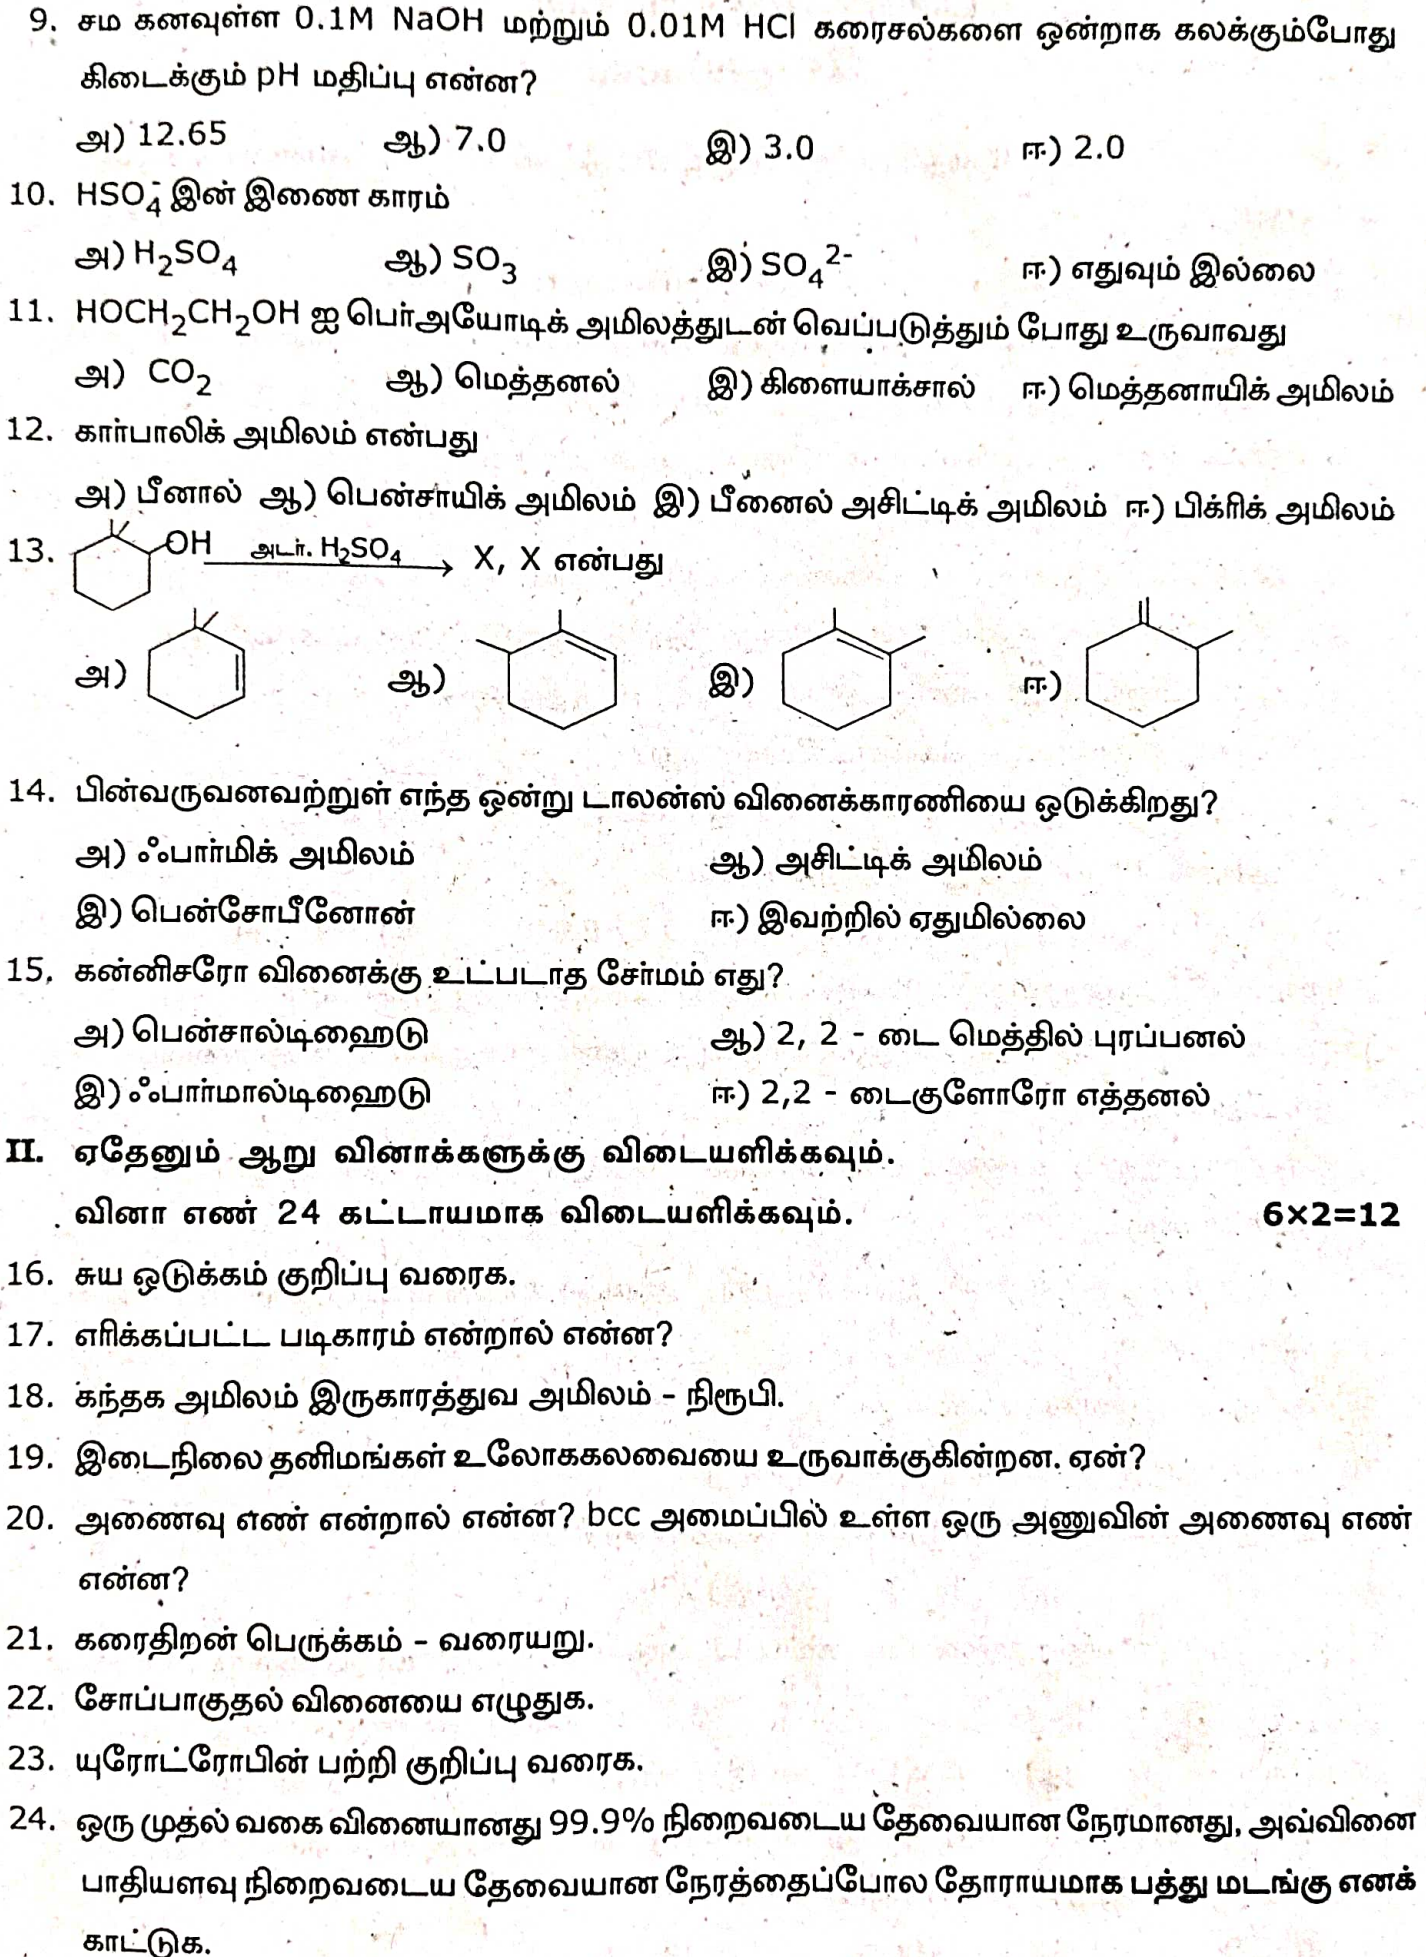 9. சம கனவுள்ள 0.1M NaOH மற்றும் 0.01M HCl கரைசல்களை ஒன்றாக கலக்கும்போது
கிடைக்கும் pH மதிப்பு என்ன?
அ) 12.65 ஆ) 7.0 இ) 3.0 ஈ) 2.0
10. HSO₄⁻ இன் இணை காரம்
அ) H₂SO₄ ஆ) SO₃ இ) SO₄²⁻ ஈ) எதுவும் இல்லை
11. HOCH₂CH₂OH ஐ பெர்அயோடிக் அமிலத்துடன் வெப்படுத்தும் போது உருவாவது
அ) CO₂ ஆ) மெத்தனல் இ) கிளையாக்சால் ஈ) மெத்தனாயிக் அமிலம்
12. கார்பாலிக் அமிலம் என்பது
அ) பீனால் ஆ) பென்சாயிக் அமிலம் இ) பீனைல் அசிட்டிக் அமிலம் ஈ) பிக்ரிக் அமிலம்
13. OH அடர். H₂SO₄ X, X என்பது
அ) ஆ) இ) ஈ)
14. பின்வருவனவற்றுள் எந்த ஒன்று டாலன்ஸ் வினைக்காரணியை ஒடுக்கிறது?
அ) ஃபார்மிக் அமிலம் ஆ) அசிட்டிக் அமிலம்
இ) பென்சோபீனோன் ஈ) இவற்றில் ஏதுமில்லை
15. கன்னிசரோ வினைக்கு உட்படாத சேர்மம் எது?
அ) பென்சால்டிஹைடு ஆ) 2, 2 - டை மெத்தில் புரப்பனல்
இ) ஃபார்மால்டிஹைடு ஈ) 2,2 - டைகுளோரோ எத்தனல்
II. ஏதேனும் ஆறு வினாக்களுக்கு விடையளிக்கவும்.
வினா எண் 24 கட்டாயமாக விடையளிக்கவும். 6×2=12
16. சுய ஒடுக்கம் குறிப்பு வரைக.
17. எரிக்கப்பட்ட படிகாரம் என்றால் என்ன?
18. கந்தக அமிலம் இருகாரத்துவ அமிலம் - நிரூபி.
19. இடைநிலை தனிமங்கள் உலோககலவையை உருவாக்குகின்றன. ஏன்?
20. அணைவு எண் என்றால் என்ன? bcc அமைப்பில் உள்ள ஒரு அணுவின் அணைவு எண்
என்ன?
21. கரைதிறன் பெருக்கம் - வரையறு.
22. சோப்பாகுதல் வினையை எழுதுக.
23. யுரோட்ரோபின் பற்றி குறிப்பு வரைக.
24. ஒரு முதல் வகை வினையானது 99.9% நிறைவடைய தேவையான நேரமானது, அவ்வினை
பாதியளவு நிறைவடைய தேவையான நேரத்தைப்போல தோராயமாக பத்து மடங்கு எனக்
காட்டுக.